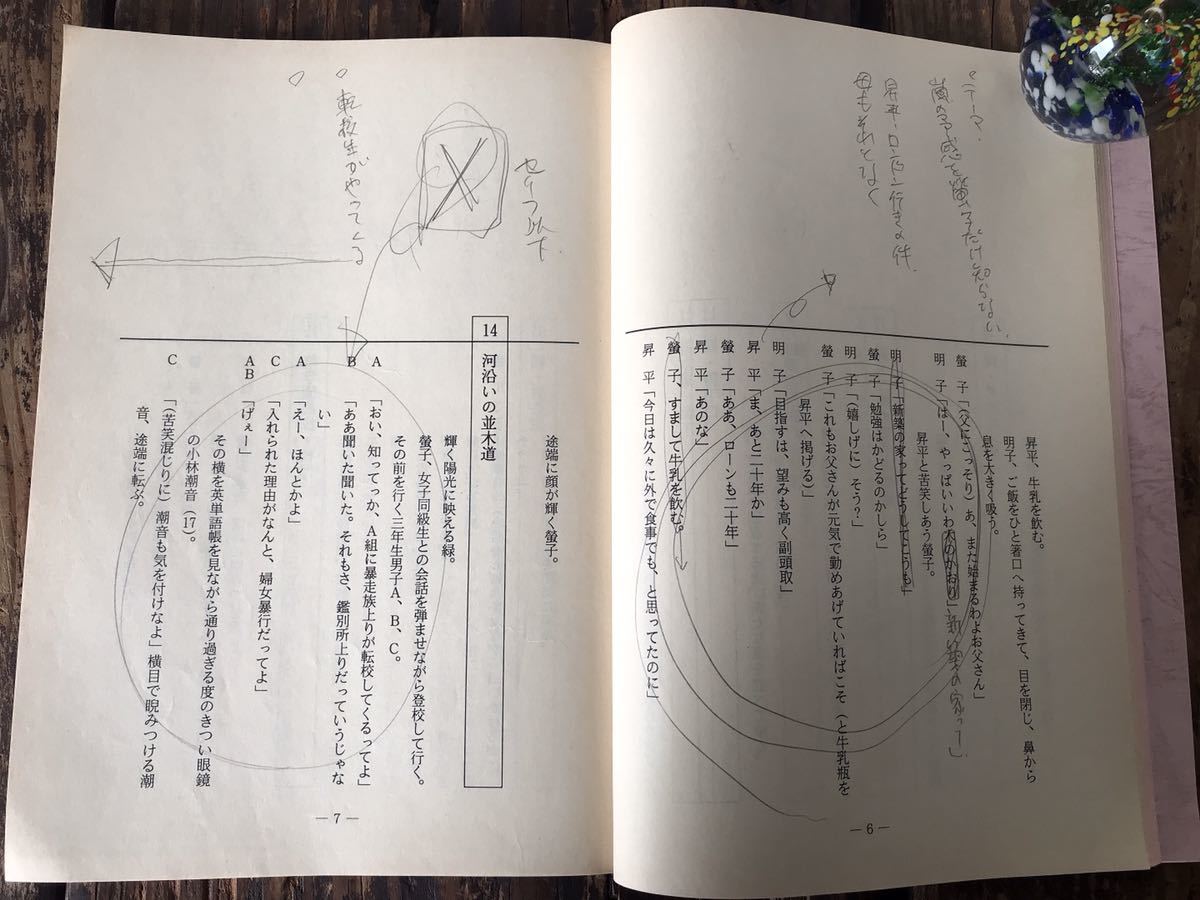 ・テーマ、
嵐の予感を螢子だけ知らない、
昇平・ロンドン行きの件、
母もそれとなく
昇平、牛乳を飲む。
明子、ご飯をひと箸口へ持ってきて、目を閉じ、鼻から
息を大きく吸う。
螢　子「（父にこっそり）あ、また始まるわよお父さん」
明　子「はー、やっぱいいわ木のかおり」
昇平と苦笑しあう螢子。
明　子「新築の家ってどうしてこうも」
螢　子「勉強はかどるのかしら」
明　子「（嬉しげに）そう？」
螢　子「これもお父さんが元気で勤めあげていればこそ（と牛乳瓶を
昇平へ掲げる）」
明　子「目指すは、望みも高く副頭取」
昇　平「ま、あと二十年か」
螢　子「ああ、ローンも二十年」
昇　平「あのな」
螢子、すまして牛乳を飲む。
昇　平「今日は久々に外で食事でも、と思ってたのに」
― 6 ―
セリフ以下
転校生がやってくる
途端に顔が輝く螢子。
14　河沿いの並木道
輝く陽光に映える緑。
螢子、女子同級生との会話を弾ませながら登校して行く。
その前を行く三年生男子A、B、C。
A　「おい、知ってっか、A組に暴走族上りが転校してくるってよ」
B　「ああ聞いた聞いた。それもさ、鑑別所上りだっていうじゃな
い」
A　「えー、ほんとかよ」
C　「入れられた理由がなんと、婦女暴行だってよ」
AB　「げぇー」
その横を英単語帳を見ながら通り過ぎる度のきつい眼鏡
の小林潮音（17）。
C　「（苦笑混じりに）潮音も気を付けなよ」横目で睨みつける潮
音、途端に転ぶ。
― 7 ―